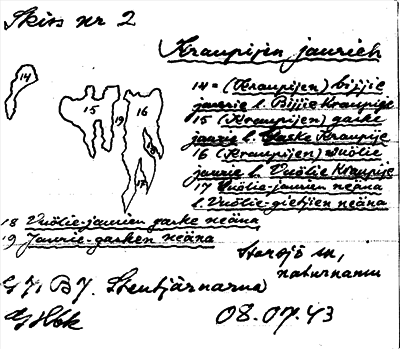 Skiss nr 2
Kraupijen jaurieh
14 = (Kraupijen) bijjie
jaurie l. Bijjie Kraupije
15 (Kraupijen) gaske
jaurie l. Gaske Kraupije
16 (Kraupijen) vuölie
jaurie l. Vuölie Kraupije
17 Vuölie-jaurien neäna
l. Vuölie-gietjien neäna
18 Vuölie-jaurien gaske neäna
19 Jaurie-gasken neäna
14
15
19
16
18
17
Stensjö m,
naturnamn
G 7, B 7. Stentjärnarna
08.07.43